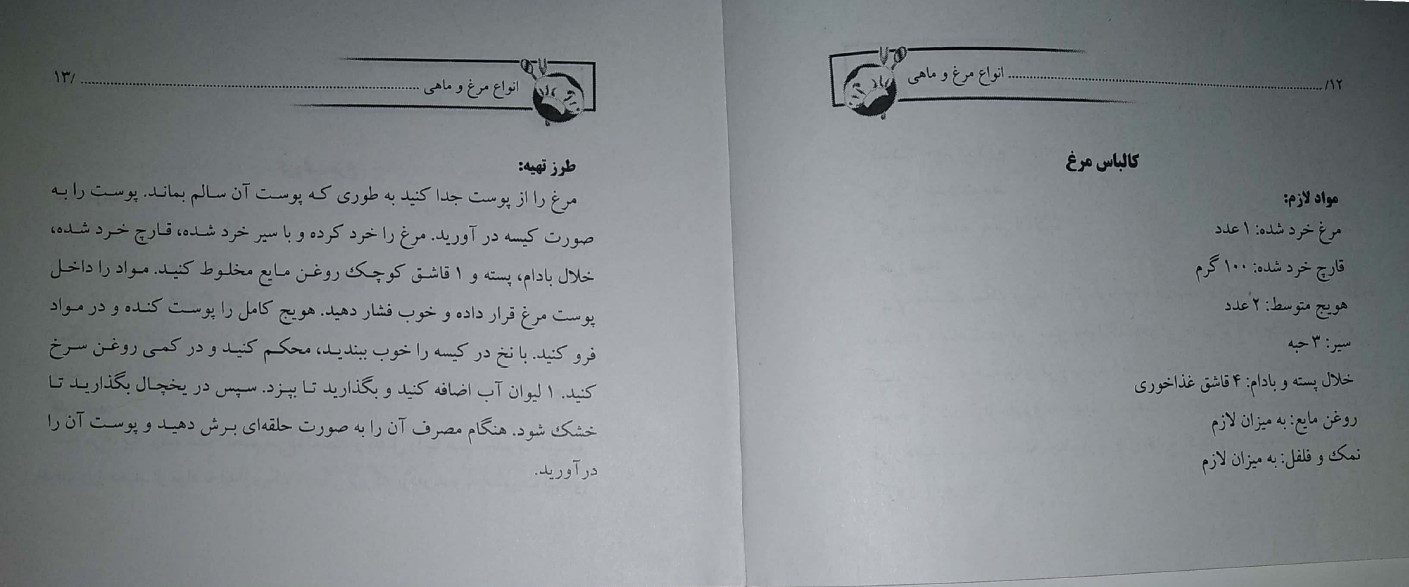 ۱۲/ ........................ انواع مرغ و ماهی
کالباس مرغ
مواد لازم:
مرغ خرد شده: ۱ عدد
قارچ خرد شده: ۱۰۰ گرم
هویج متوسط: ۲ عدد
سیر: ۳ حبه
خلال پسته و بادام: ۴ قاشق غذاخوری
روغن مایع: به میزان لازم
نمک و فلفل: به میزان لازم
انواع مرغ و ماهی ........................ /۱۳
طرز تهیه:
مرغ را از پوست جدا کنید به طوری که پوست آن سالم بماند. پوست را به
صورت کیسه در آورید. مرغ را خرد کرده و با سیر خرد شده، قارچ خرد شده،
خلال بادام، پسته و ۱ قاشق کوچک روغن مایع مخلوط کنید. مواد را داخل
پوست مرغ قرار داده و خوب فشار دهید. هویج کامل را پوست کنده و در مواد
فرو کنید. با نخ در کیسه را خوب ببندید، محکم کنید و در کمی روغن سرخ
کنید. ۱ لیوان آب اضافه کنید و بگذارید تا بپزد. سپس در یخچال بگذارید تا
خشک شود. هنگام مصرف آن را به صورت حلقه‌ای برش دهید و پوست آن را
درآورید.